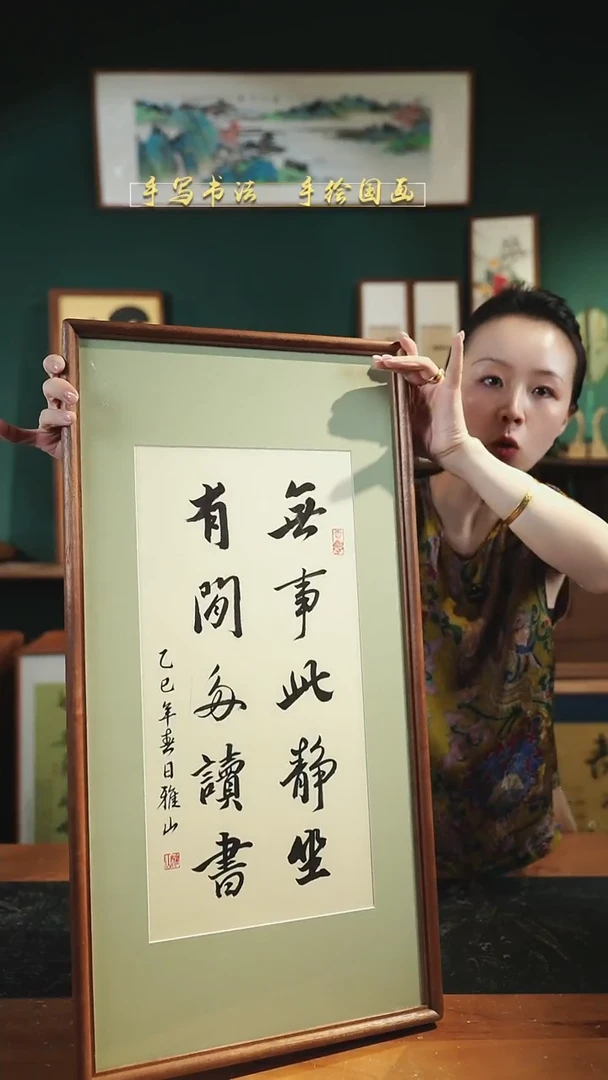 手写书法 手绘国画
無事此静坐
有閒多讀書
乙巳年春日雅山